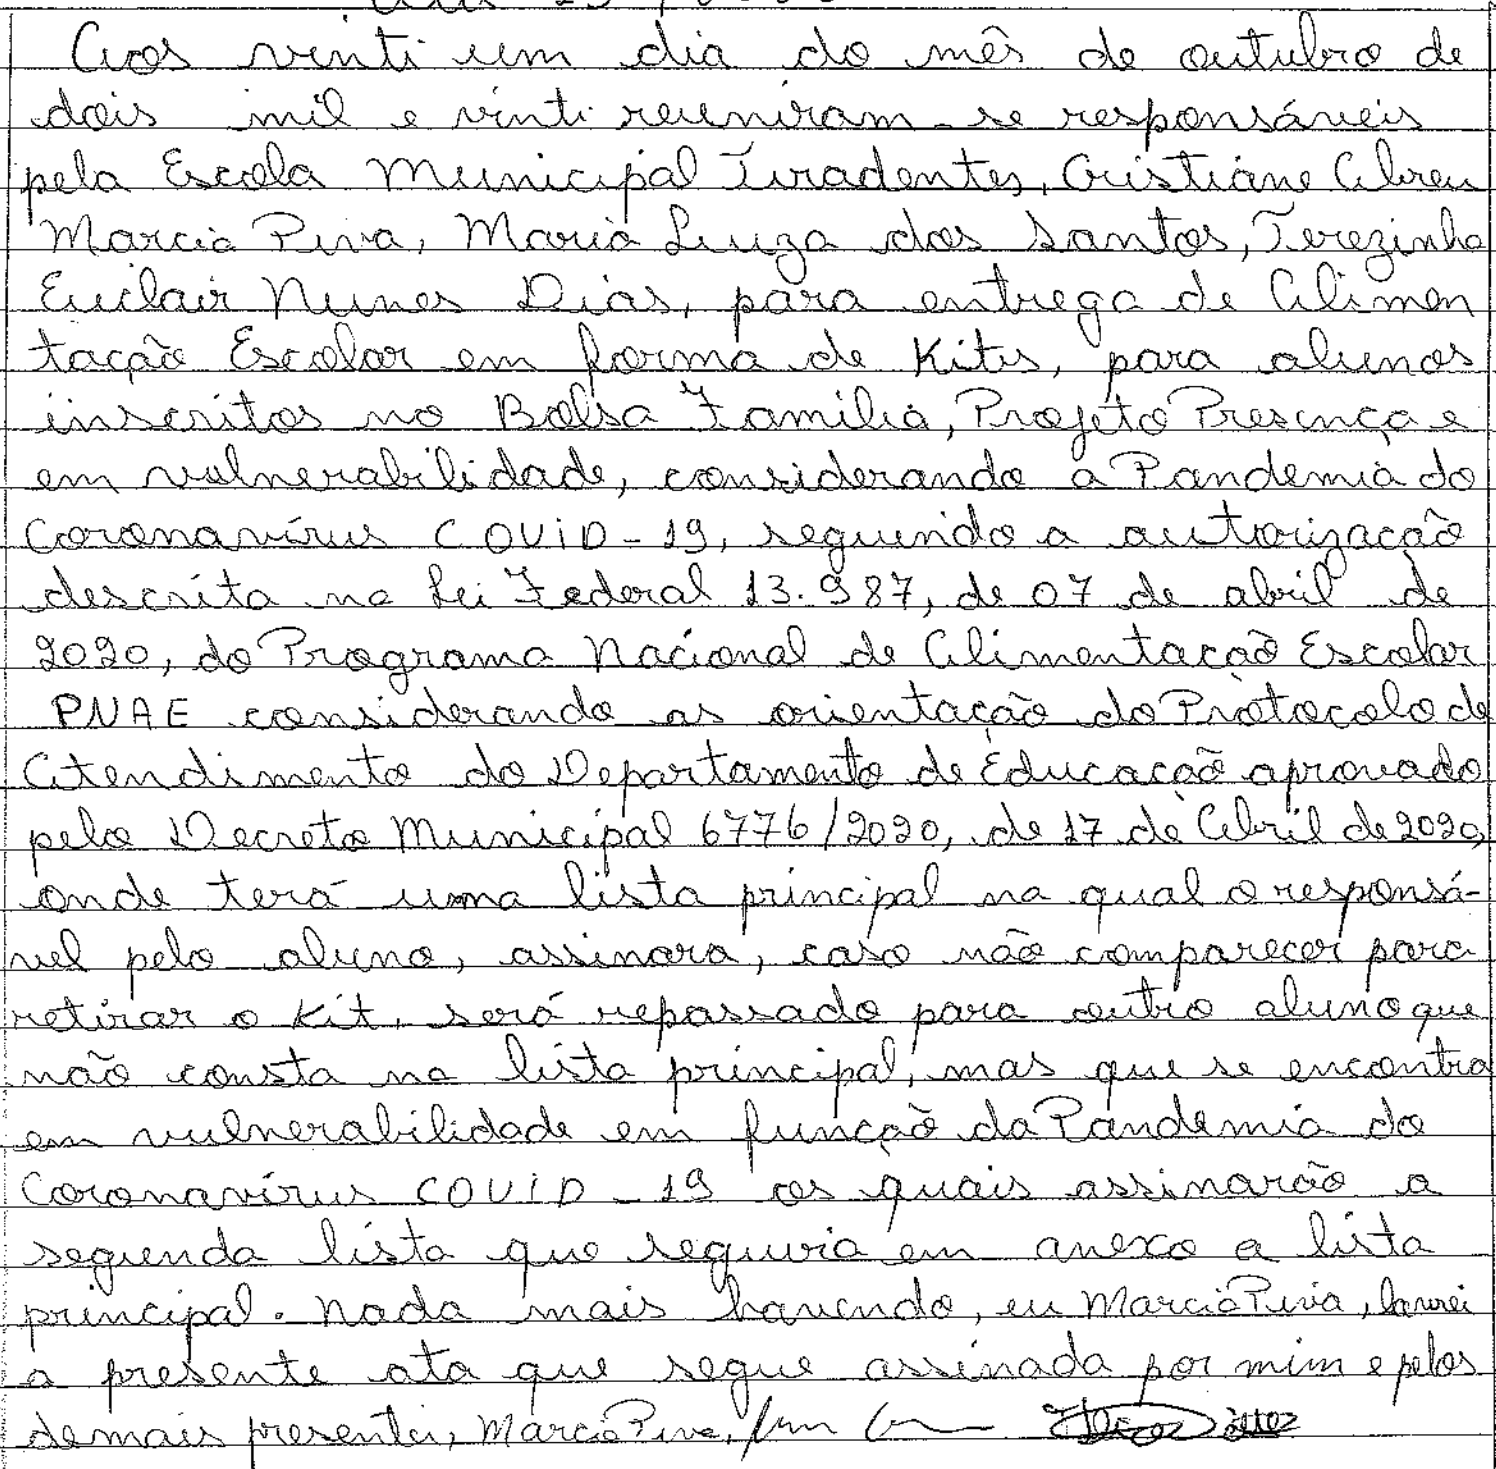 Aos vinti um dia do mês de outubro de
dois mil e vinti reuniram-se responsáveis
pela Escola Municipal Tiradentes, Cristiane Abreu
Marcia Piva, Maria Luiza dos Santos, Terezinha
Euclair Nunes Dias, para entrega de Alimen
tação Escolar em forma de Kits, para alunos
inscritos no Bolsa Família, Projeto Presença e
em vulnerabilidade, considerando a Pandemia do
Coronavírus COViD-19, seguindo a autorização
descrita na Lei Federal 13.987, de 07 de abril de
2020, do Programa Nacional de Alimentação Escolar
PNAE considerando as orientação do Protocolo de
Atendimento do Departamento de Educação aprovado
pelo Decreto Municipal 6776/2020, de 17 de Abril de 2020,
onde terá uma lista principal na qual o responsá-
vel pelo aluno, assinara, caso não comparecer para
retirar o Kit, será repassado para outro aluno que
não consta na lista principal, mas que se encontra
em vulnerabilidade em função da Pandemia do
Coronavírus COVID-19 os quais assinarão a
segunda lista que seguira em anexo a lista
principal. Nada mais havendo, eu Marcia Piva, lavrei
a presente ata que segue assinada por mim e pelos
demais presentes, Marcia Piva,